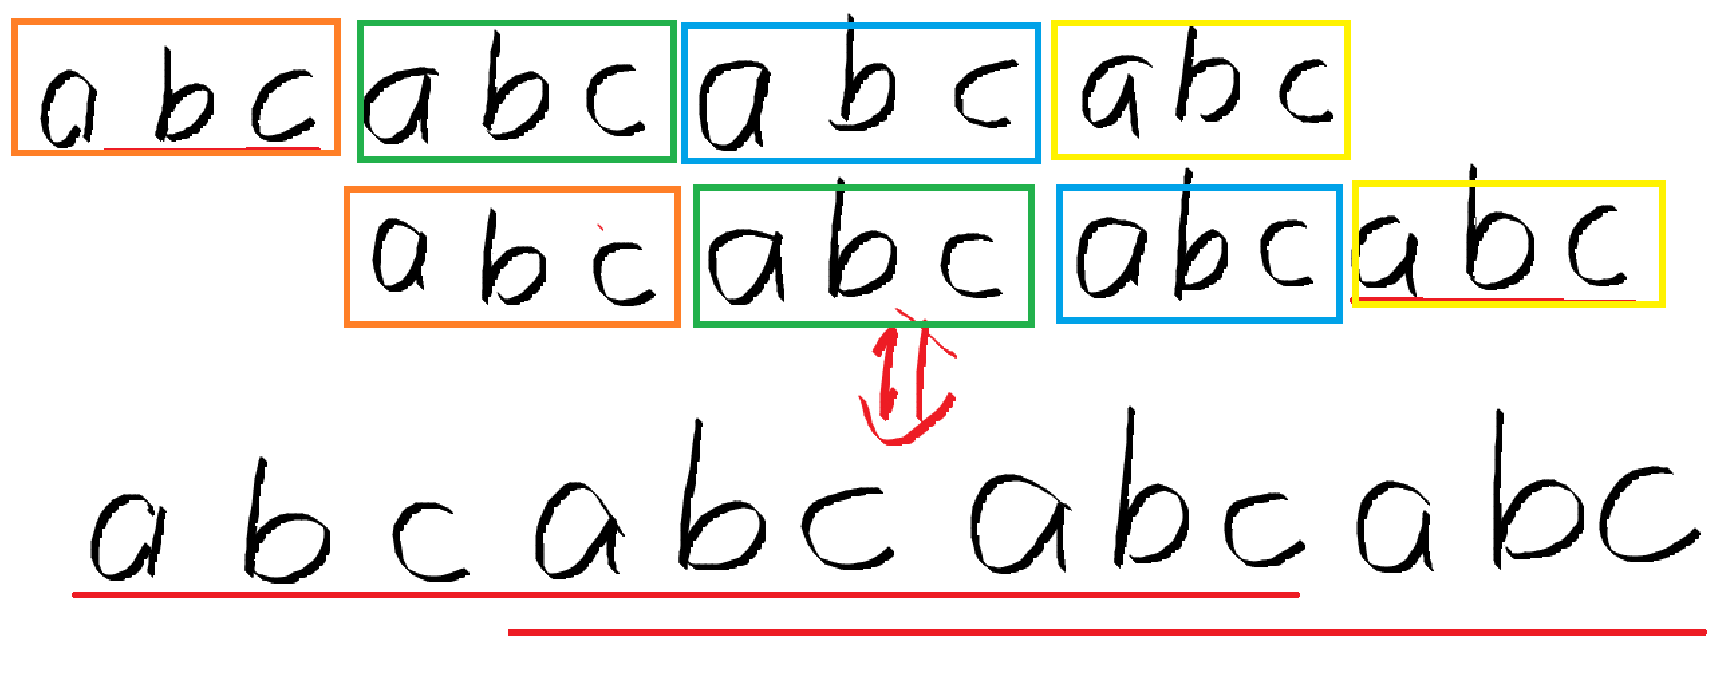 a b c a b c a b c a b c
a b c a b c a b c a b c
a b c a b c a b c a b c